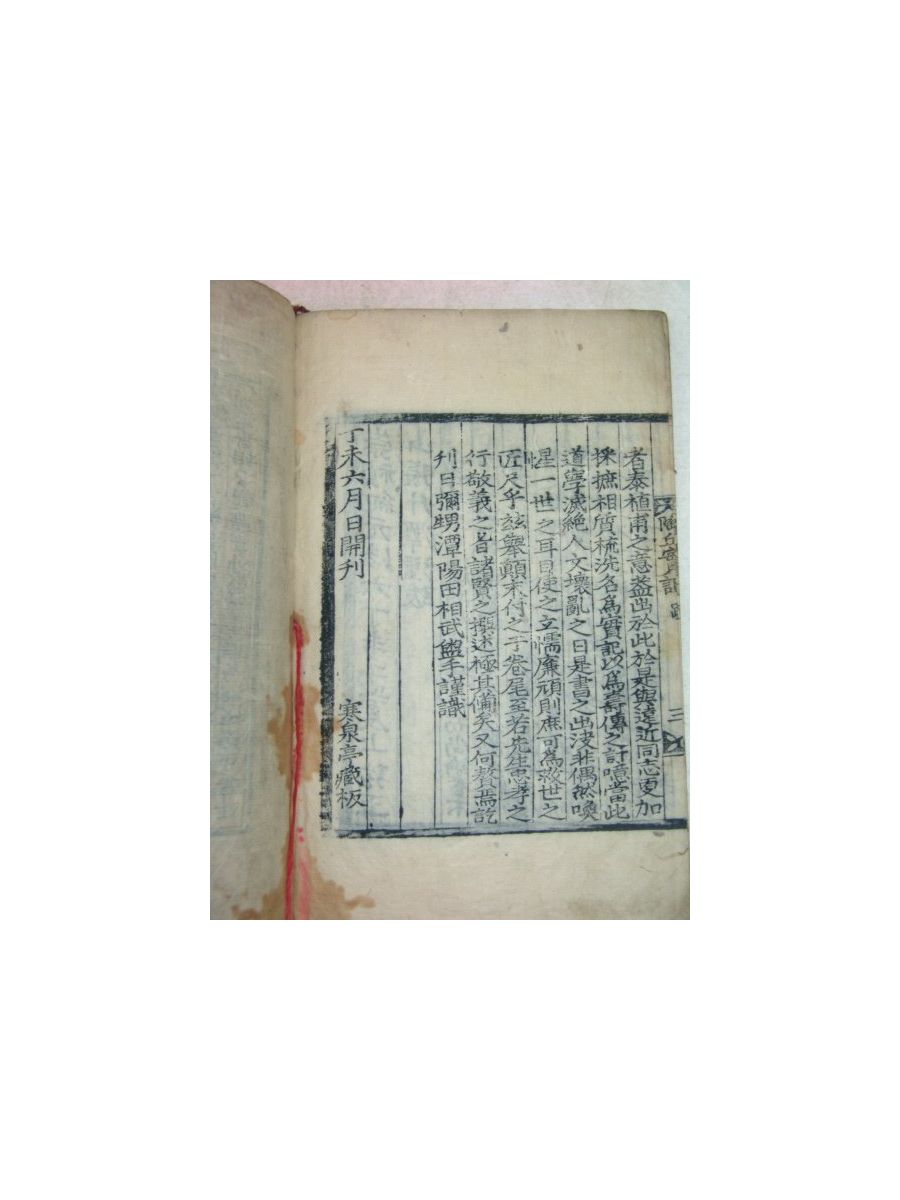 陶丘實記 跋 三
者泰植甫之意盖出於此於是與遠近同志更加
採摭相質梳洗名爲實記以爲壽傳之計噫當此
道學滅絶人文壞亂之日是書之出决非偶然喚
惺一世之耳目使之立懦廉頑則庶可爲救世之
匠尺乎玆舉顚末付之于卷尾至若先生忠孝之
行敬義之旨諸賢之撰述極其備矣又何贅焉訖
刊日彌甥潭陽田相武盥手謹識
丁未六月日開刊 寒泉亭藏板